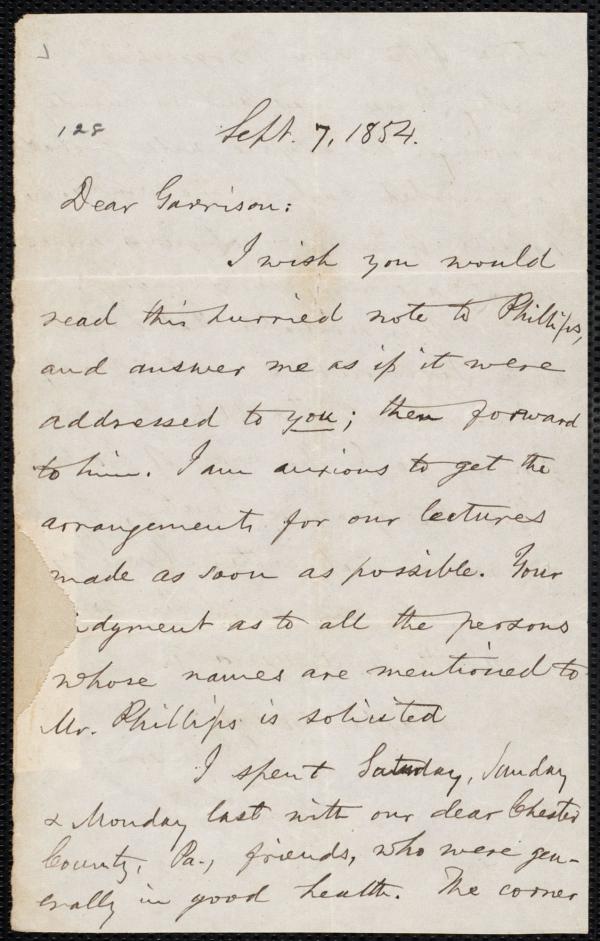 128
Sept. 7, 1854.
Dear Garrison:
I wish you would
read this hurried note to Phillips,
and answer me as if it were
addressed to you; then forward
to him. I am anxious to get the
arrangements for our lectures
made as soon as possible. Your
judgment as to all the persons
whose names are mentioned to
Mr. Phillips is solicited
I spent Saturday, Sunday
& Monday last with our dear Chester
County, Pa., friends, who were gen-
erally in good health. The corner